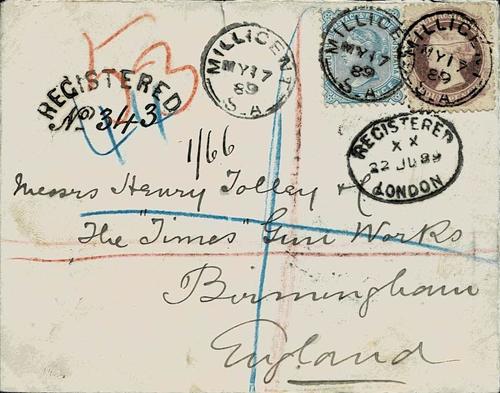 53
REGISTERED
No 343
MILLICENT
MY 17
89
S.A
MILLICENT
MY 17
89
S.A
MILLICENT
MY 17
89
S.A
REGISTERED
X X
22 JU 89
LONDON
1/66
Messrs Henry Tolley &
The "Times" Gun Works
Birmingham
England